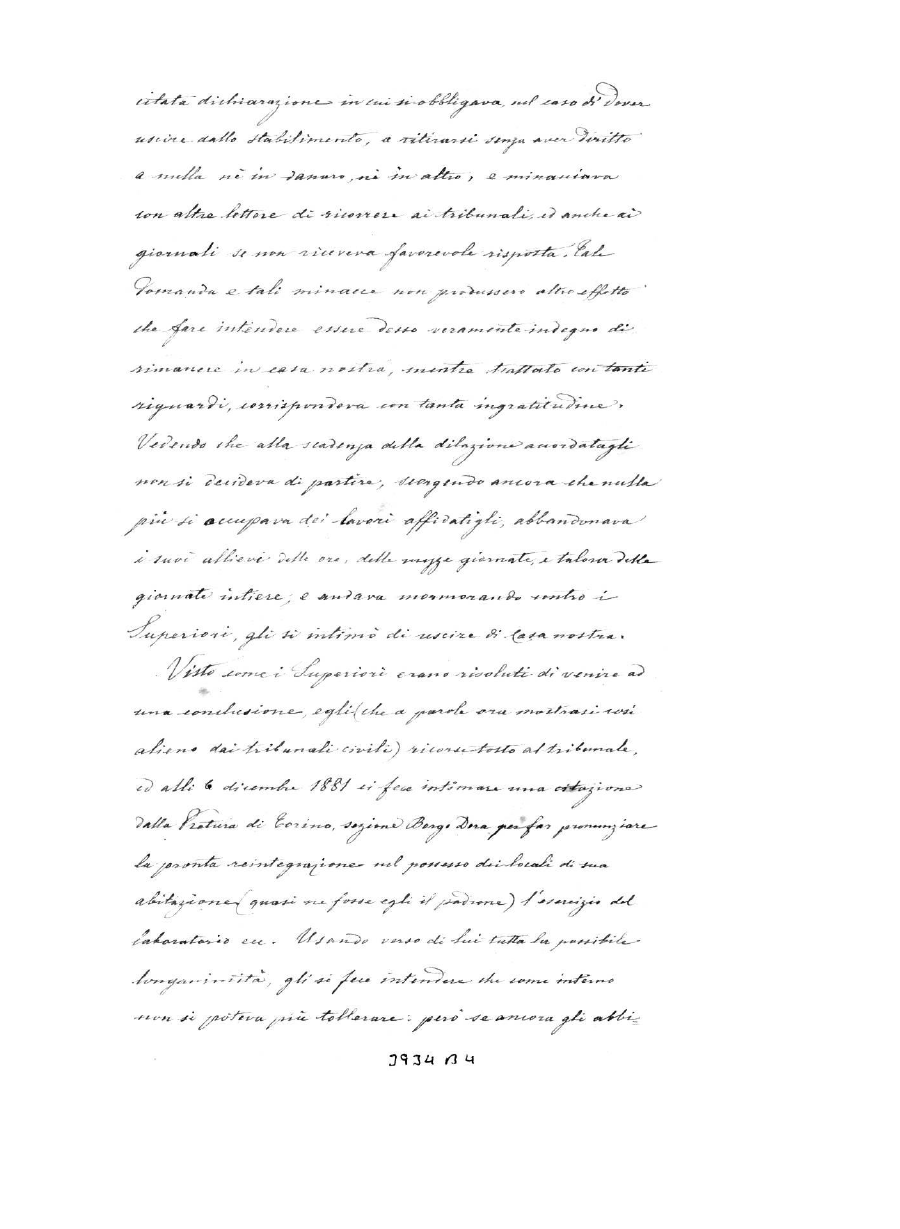 citata dichiarazione in cui si obbligava, nel caso di dover
uscire dallo stabilimento, a ritirarsi senza aver diritto
a nulla nè in danaro, nè in altro, e minaciava
con altre lettere di ricorrere ai tribunali, ed anche ai
giornali se non riceveva favorevole risposta. Tale
domanda e tali minacce non produssero altro effetto
che fare intendere essere desso veramente indegno di
rimanere in casa nostra, mentre trattato con tanti
riguardi, corrispondeva con tanta ingratitudine.
Vedendo che alla scadenza della dilazione accordatagli
non si decideva di partire, scorgendo ancora che nulla
più si occupava dei lavori affidatigli, abbandonava
i suoi allievi delle ore, delle mezze giornate, e talora delle
giornate intiere, e andava mormorando contro i
Superiori, gli si intimò di uscire di Casa nostra.
Visto come i Superiori erano risoluti di venire ad
una conclusione, egli (che a parole ora mostrasi così
alieno dai tribunali civili) ricorse tosto al tribunale,
ed alli 6 dicembre 1881 ci fece intimare una citazione
dalla Pretura di Torino, sezione Borgo Dora per far pronunziare
la pronta reintegrazione nel possesso dei locali di sua
abitazione (quasi ne fosse egli il padrone) l'esercizio del
laboratorio ecc. Usando verso di lui tutta la possibile
longanimità, gli si fece intendere che come interno
non si poteva più tollerare: però se ancora gli abbi=
3934 B 4